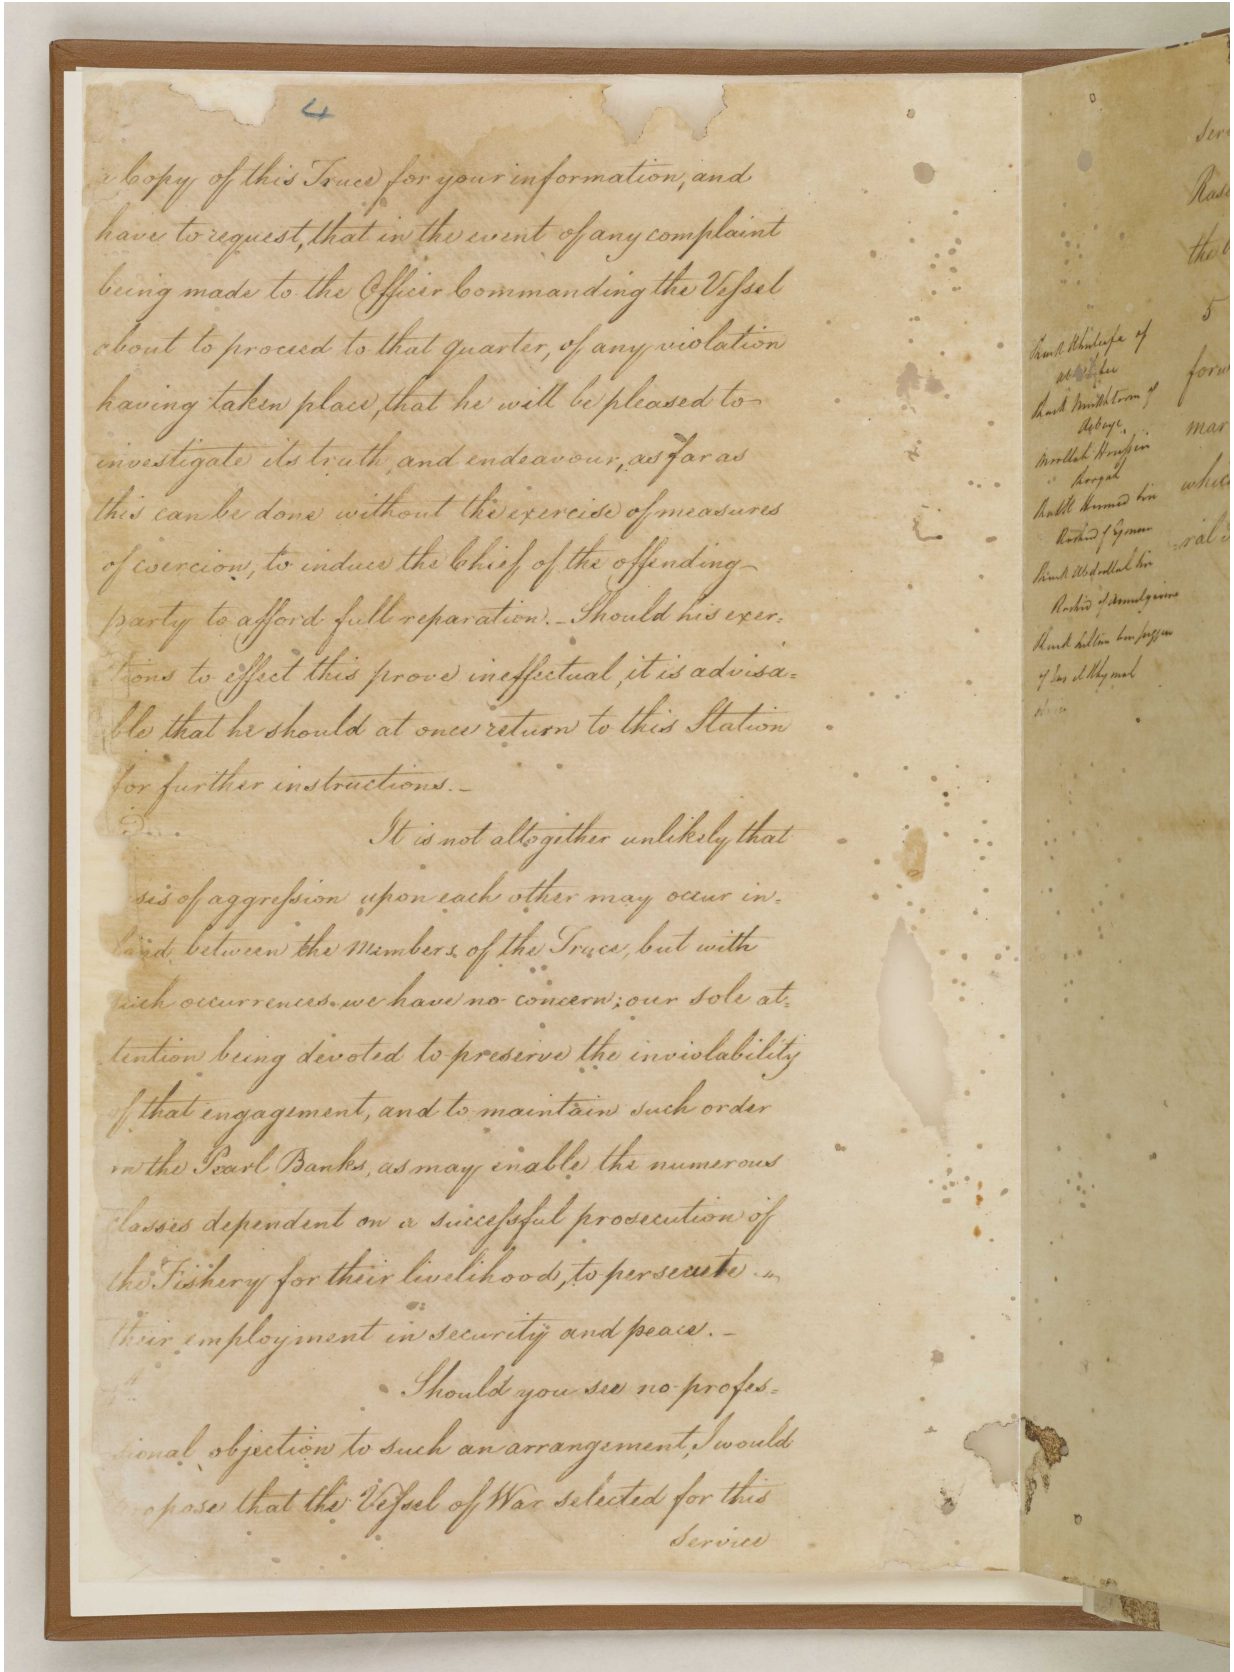 4
a Copy of this Truce for your information, and
have to request, that in the event of any complaint
being made to the Officer Commanding the Vessel
about to proceed to that quarter, of any violation
having taken place, that he will be pleased to
investigate its truth and endeavour, as far as
this can be done without the exercise of measures
of coercion, to induce the Chief of the offending
party to afford full reparation. - Should his exer=
tions to effect this prove ineffectual, it is advisa=
ble that he should at once return to this Station
for further instructions. -
It is not altogether unlikely that
of aggression upon each other may occur in=
land between the Members of the Truce, but with
such occurrences we have no concern; our sole at=
tention being devoted to preserve the inviolability
of that engagement, and to maintain such order
on the Pearl Banks, as may enable the numerous
classes dependent on a successful prosecution of
the Fishery for their livelihood, to persecute
their employment in security and peace. -
Should you see no profes=
sional objection to such an arrangement, I would
propose that the Vessel of War selected for this
service
the
5
Shaik Khuleefa of
Shaik of
Moollah Hussein
of Ejman
Shaik Abdoollah bin
Rashid of Amulgavine
Shaik Sultan bin Suggur
of Ras el Khymah